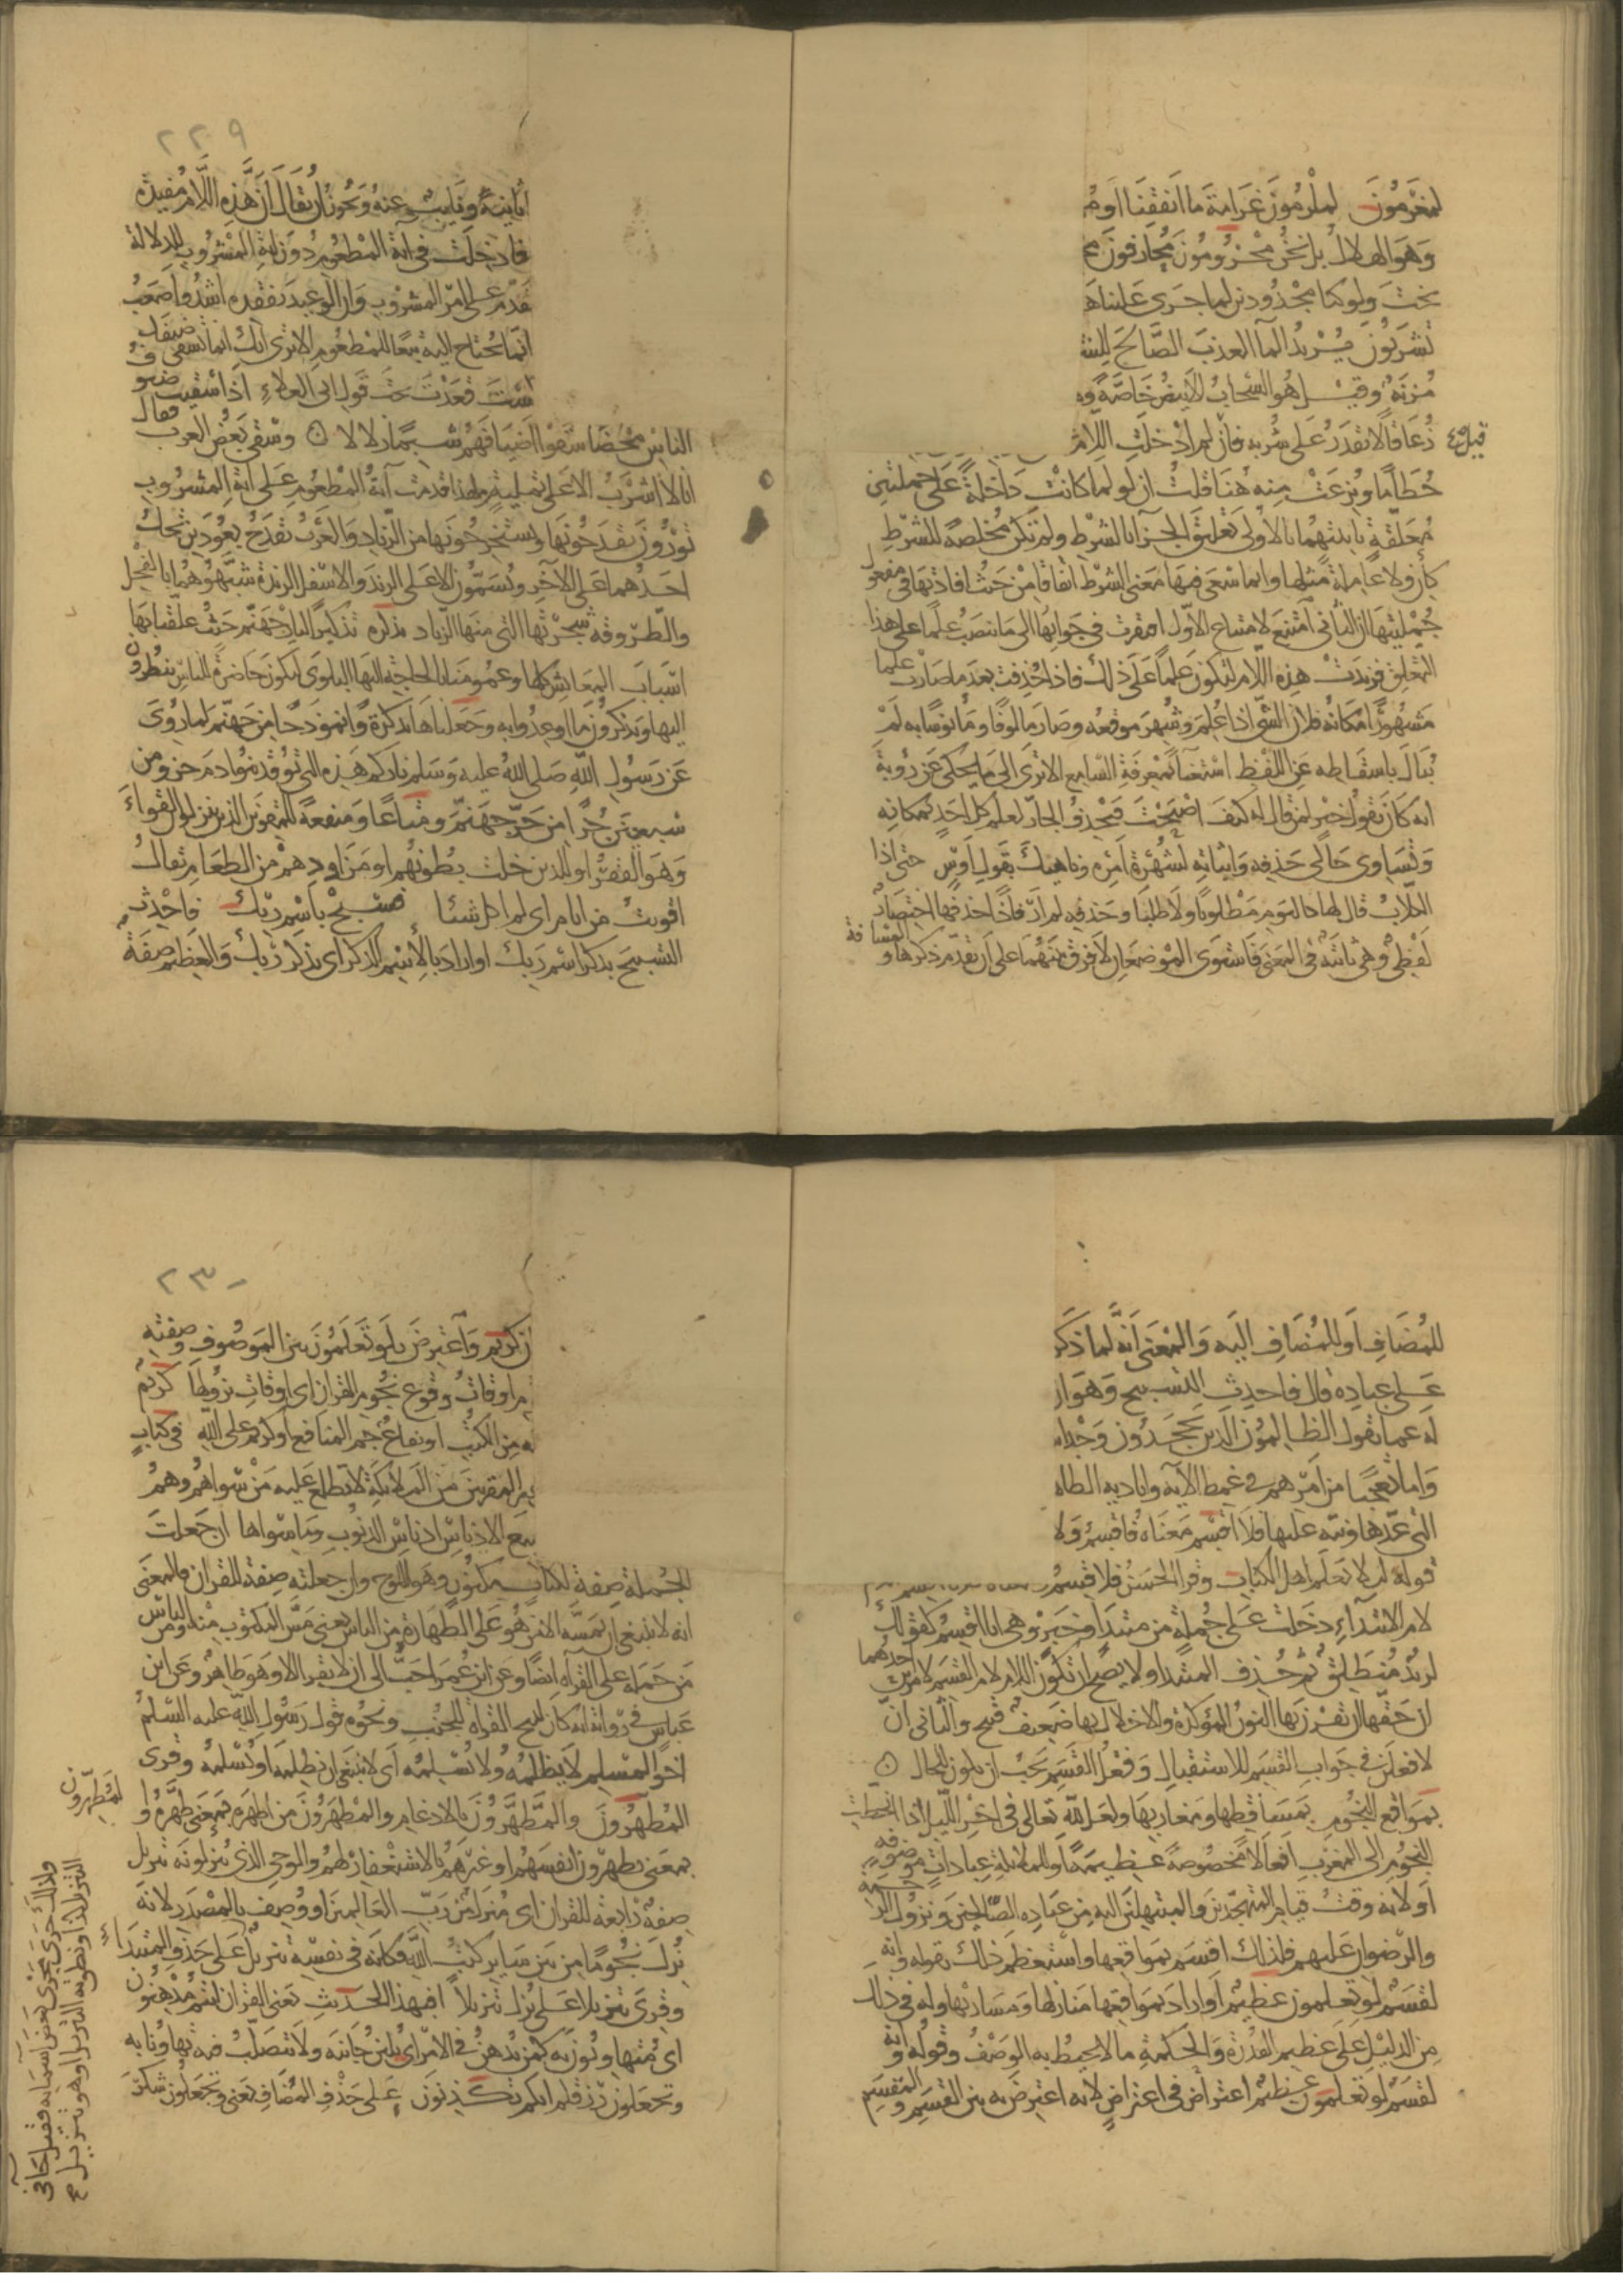 لمغرمون لملزمون غرامة ما انفقنا او م
وهو الهلاك بل نحن محرومون محارفون مح
بخت ولو كنا مجدودين لما جرى علينا ه
تشربون يريد المآ العذب الصالح للش
مزنة وقيل هو السحاب الابيض خاصة وه
زعاقا لا تقدر على شربه فان لم ادخلت اللام
حطاما ونزعت منه هنا قلت ان لو لما كانت داخلة على جملتين
معلقة ثانيتهما بالاولى تعليق الجزآ بالشرط ولم تكن مخلصة للشرط
كان ولا عاملة مثلها وانما سرى فيها معنى الشرط اتفاقا من حيث افادتها في مضموني
جملتيها ان الثاني امتنع لامتناع الاول افتقرت في جوابها الى ما ينصب علما على هذا
التعلق فزيدت هذه اللام لتكون علما على ذلك فاذا حذفت بعد ما صارت علما
مشهورا مكانه فلان الشي اذا علم وشهر موقعه وصار مالوفا ومانوسا به لم
يبال باسقاطه عن اللفظ استغنآ بمعرفة السامع الا ترى الى ما يحكى عن رؤبة
انه كان يقول خير لمن قال له كيف اصبحت فحذف الجار لعلم كل احد بمكانه
وتساوى حالي حذفه واثباته لشهرة امره وناهيك بقول اوس حتى اذا
الكلاب قال لها كاليوم مطلوبا ولا طلبا وحذفه لم ار فاذا حذفها اختصار
لفظي وهي ثابتة في المعنى فاستوى الموضعان لا فرق بينهما على ان تقدم ذكرها و المسافة
قيل
٢٢٩
ثانية ونايب عنه ويجوز ان يقال ان هذه اللام مفيدة
فادخلت في آية المطعوم دون آية المشروب للدلالة
مقدم على امر المشروب وان الوعيد بفقده اشد واصعب
انما يحتاج اليه تبعا للمطعوم الا ترى انك انما تسقي ضيفك
قعدت تحت قول ابي العلاء اذا سقيت ضيو ف
الناس محضا سقوا اضيافهم شبما زلالا وسقى بعض العرب فقال
انا لا اشرب الا على ثميلة ولهذا قدمت آية المطعوم على آية المشروب
تورون تقدحونها وتستخرجونها من الزناد والعرب تقدح بعودين تحك
احدهما على الآخر ويسمون الاعلى الزند والاسفل الزندة شبهوهما بالفحل
والطروقة شجرتها التي منها الزناد تذكرة تذكيرا لنار جهنم حيث علقنا بها
اسباب المعايش كلها وعممنا بالحاجة اليها البلوى لتكون حاضرة للناس ينظرون
اليها ويذكرون ما اوعدوا به وجعلناها تذكرة وانموذجا من جهنم لما روى
عن رسول الله صلى الله عليه وسلم ناركم هذه التي توقد بنو ادم جزو من
سبعين جزا من حر جهنم ومتاعا ومنفعة للمقوين الذين ينزلون القواء
وهو القفر او للذين خلت بطونهم او مزاودهم من الطعام يقال
اقويت من ايام اى لم اكل شئا فسبح باسم ربك فاحدث
التسبيح بذكر اسم ربك او اراد بالاسم الذكر اى بذكر ربك والعظيم صفة
للمضاف او للمضاف اليه والمعنى انه لما ذكر
على عباده قال فاحدث التسبيح وهو ان
له عما يقول الظالمون الذين يجحدون وحدا
واما تعجبا من امرهم في غمط الآيه واياديه الظاه
التي عدها ونبه عليها فلا اقسم معناه فاقسم ولا
قوله لئلا يعلم اهل الكتاب وقرا الحسن فلاقسم
لام الابتداء دخلت على جملة من مبتدا وخبر وهي انا اقسم كقولك
لزيد منطلق ثم حذف المبتدا ولا يصح ان تكون اللام لام القسم لامرين احدهما
ان حقها ان تقرن بها النون المؤكدة والاخلال بها ضعيف قبيح والثاني ان
لافعلن في جواب القسم للاستقبال وفعل القسم يجب ان يكون للحال
بمواقع النجوم بمساقطها ومغاربها ولعل لله تعالى في اخر الليل اذا انحطت
النجوم الى المغرب افعالا مخصوصة عظيمة او للملائكة عبادات موصوفة
او لانه وقت قيام المتهجدين والمبتهلين اليه من عباده الصالحين ونزول الرحمة
والرضوان عليهم فلذلك اقسم بمواقعها واستعظم ذلك بقوله وانه
لقسم لو تعلمون عظيم او اراد بمواقعها منازلها ومسايرها وله في ذلك
من الدليل على عظيم القدرة والحكمة ما لا يحيط به الوصف وقوله وانه
لقسم لو تعلمون عظيم اعتراض في اعتراض لانه اعترض به بين القسم والمقسم
٢٣٠
ن كريم واعترض بلو تعلمون بين الموصوف وصفته
م اوقات وقوع نجوم القران اى اوقات نزولها كريم
من الكتب او نفاع جم المنافع او كريم على الله في كتاب
المقربين من الملائكة لا يطلع عليه من سواهم وهم
جميع الادناس ادناس الذنوب وما سواها ان جعلت
الجملة صفة لكتاب مكنون وهو اللوح وان جعلته صفة للقران فالمعنى
انه لا ينبغي ان يمسه الا من هو على الطهارة من الناس يعني مس المكتوب منه ومن الناس
من حمله على القرآه ايضا وعن ابن عمر احب الى ان لا يقرا الا وهو طاهر وعن ابن
عباس في رواية انه كان يبيح القراة للجنب ونحوه قول رسول الله عليه السلم
اخو المسلم لا يظلمه ولا يسلمه اى لا ينبغي ان يظلمه او يسلمه وقرى
المطهرون والمطهرون بالادغام والمطهرون من اطهره بمعنى طهره و
بمعنى يطهرون انفسهم او غيرهم بالاستغفار لهم والوحي الذى ينزلونه تنزيل
صفة رابعة للقران اى منزل من رب العالمين او وصف بالمصدر لانه
نزل نجوما من بين ساير كتب الله فكانه في نفسه تنزيل على حذف المبتداء
وقرى تنزيلا على نزل تنزيلا افبهذا الحديث يعني القران انتم مدهنون
اى متهاونون به كمن يدهن في الامر اى يلين جانبه ولا يتصلب فيه تهاونا به
وتجعلون رزقكم انكم تكذبون على حذف المضاف يعني وتجعلون شكر
المطهرون
ولذلك جرى مجرى بعض اسمايه فقيل جآ في
التنزيل كذا ونطق به التنزيل او هو تنزيل